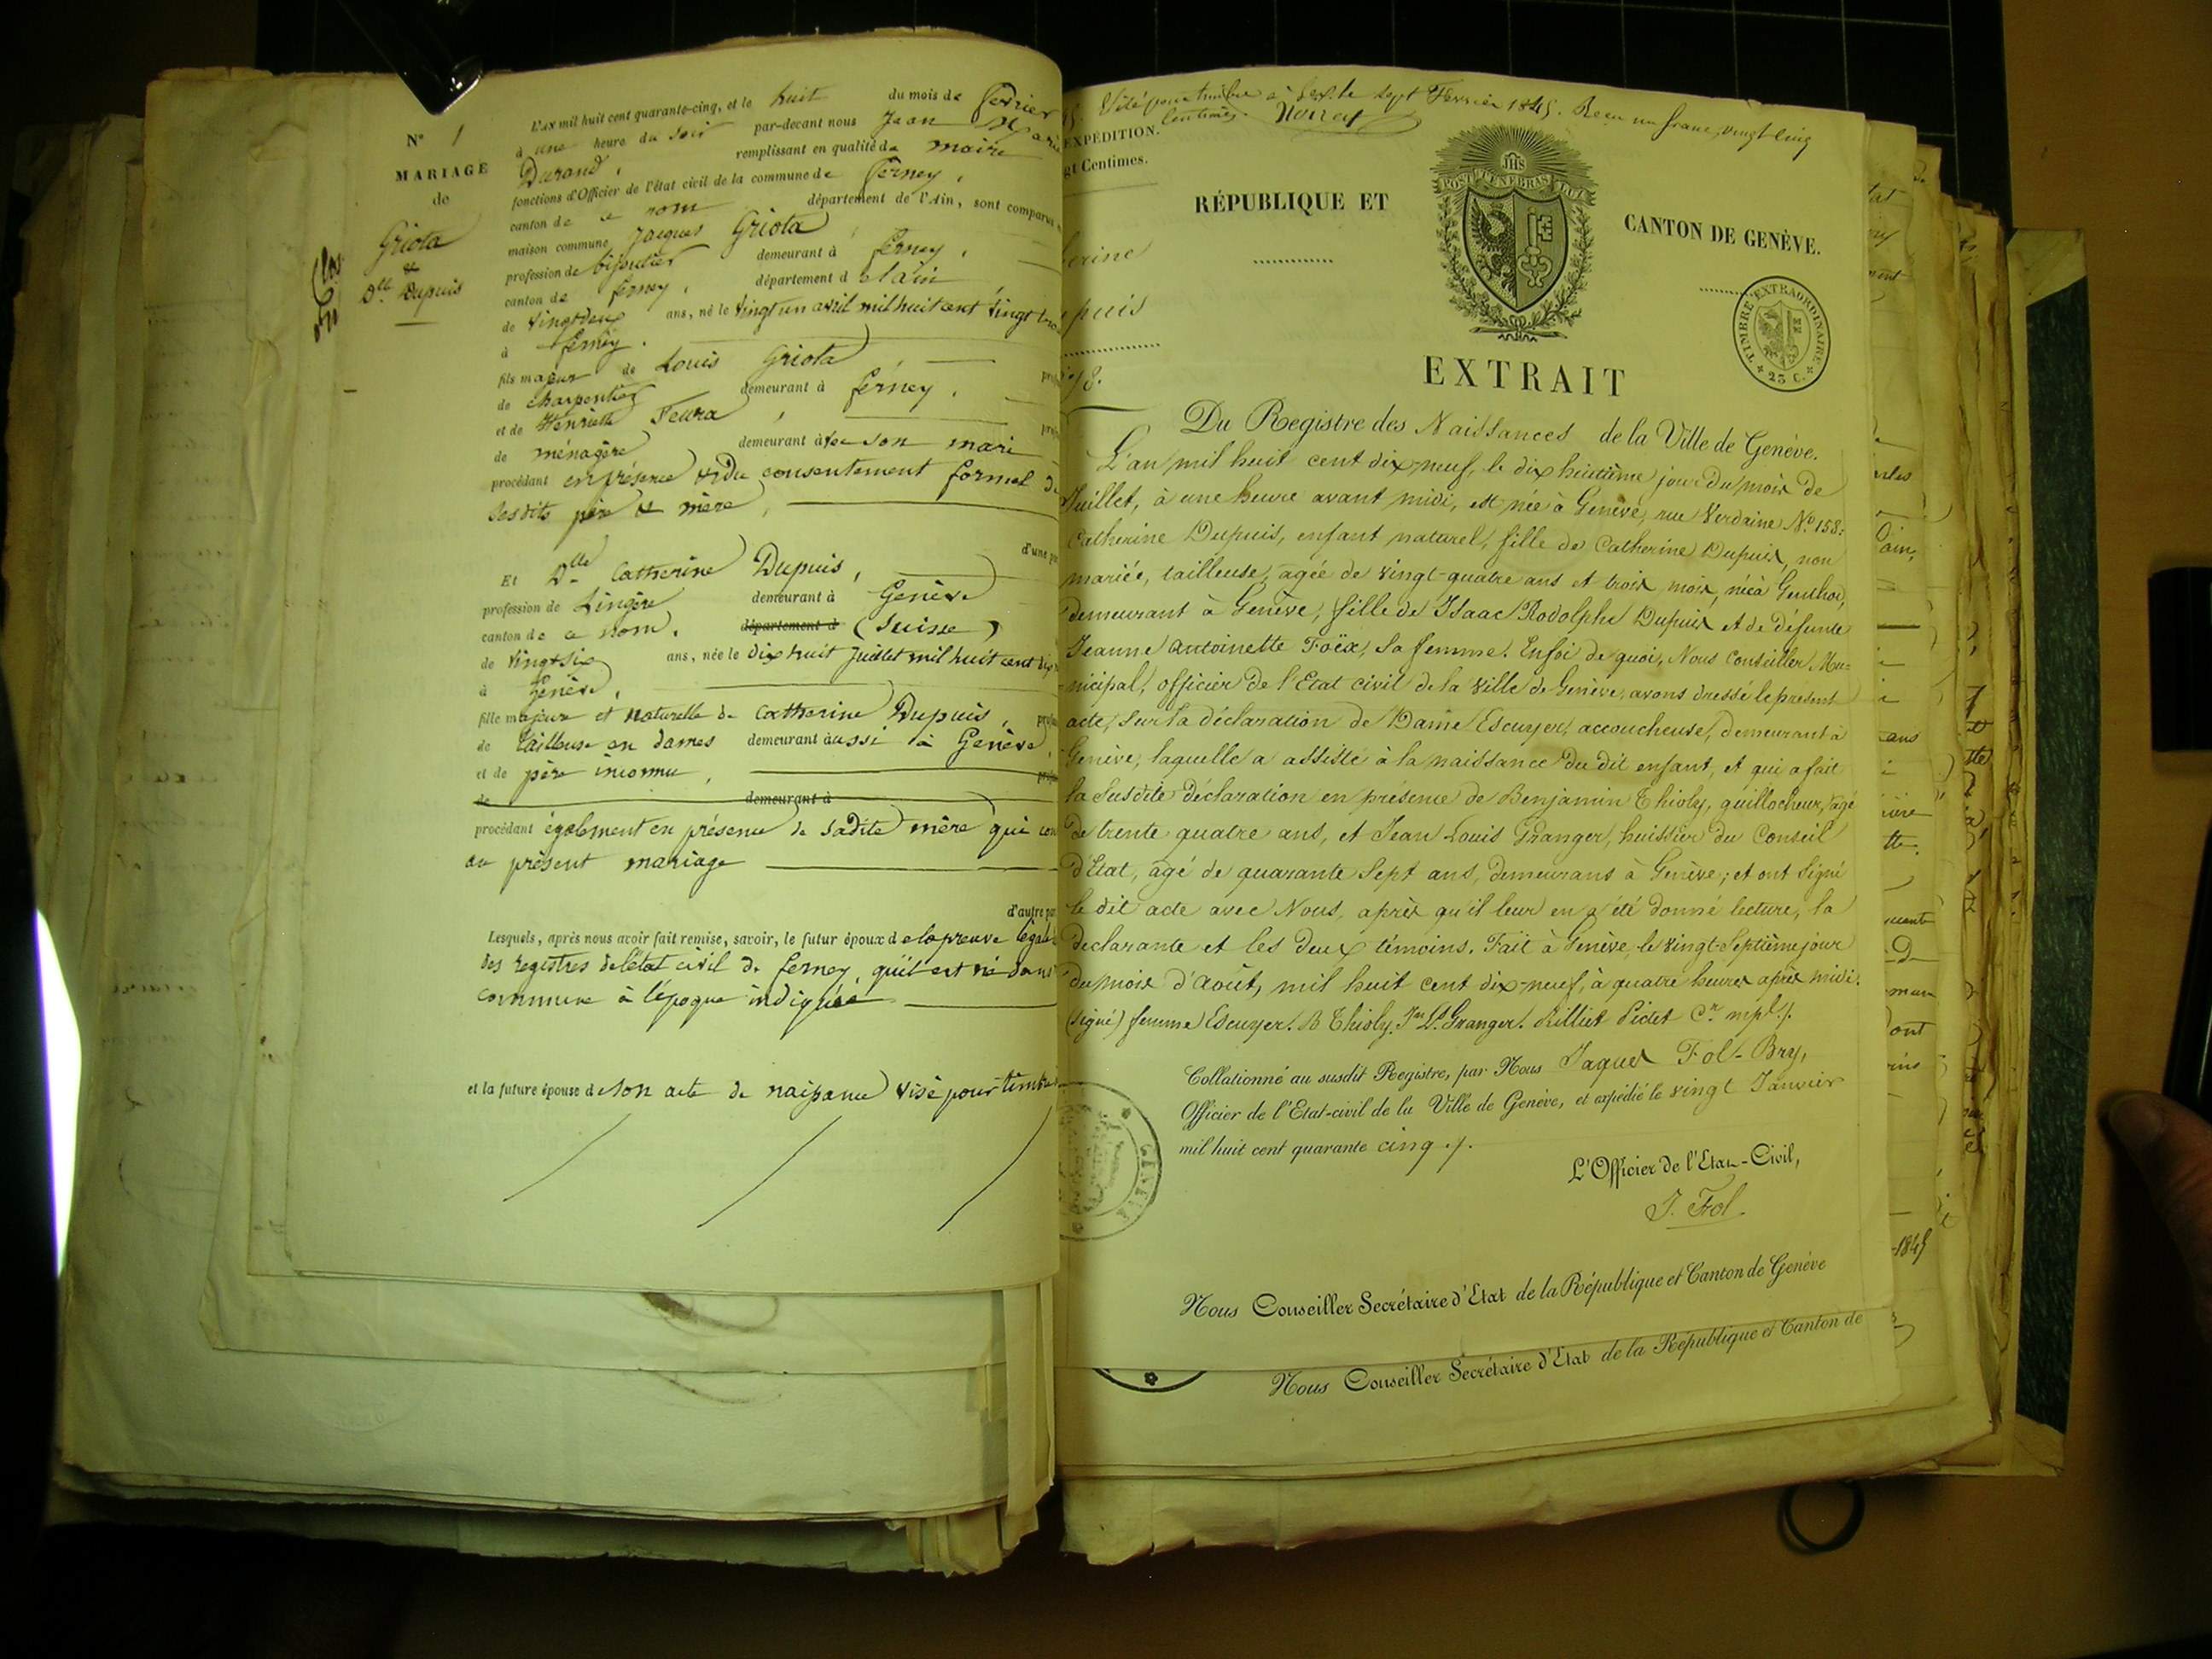 N° 1
MARIAGE
de
Griota
&
Dlle Dupuis
L'an mil huit cent quarante-cinq, et le huit du mois de février
à une heure du soir par-devant nous Jean Marie
Durand, remplissant en qualité de maire
fonctions d'Officier de l'état civil de la commune de ferney,
canton de ce nom département de l'Ain, sont comparus
maison commune Jacques Griota
profession de bijoutier demeurant à ferney,
canton de ferney, département de l'ain
de vingt deux ans, né le vingt un avril mil huit cent vingt
à ferney.
fils majeur de Louis Griota,
de charpentier demeurant à ferney,
et de Henriette
de ménagère demeurant avec son mari
procédant en présence & du consentement formel de
sesdits père & mère,
d'une
Et Dlle Catherine Dupuis,
profession de Lingère demeurant à Genève
canton de ce nom. département d (Suisse)
de vingt six ans, née le dix huit Juillet mil huit cent
à Genève,
fille majeure et naturelle de Catherine Dupuis,
de tailleuse en dames demeurant aussi à Genève,
et de père inconnu,
de demeurant à
procédant également en présence de sadite mère qui
au présent mariage
d'autre
Lesquels, après nous avoir fait remise, savoir, le futur époux de la preuve légale
des registres de l'état civil de ferney, qu'il est né dans
commune à l'époque indiquée
et la future épouse de son acte de naissance visé pour timbre
Visé pour timbre à Gex le sept Février 1845. Reçu un franc, vingt cinq
Centimes.
EXPÉDITION.
gt Centimes.
RÉPUBLIQUE ET
CANTON DE GENÈVE.
JHS
POST TENEBRAS LUX
TIMBRE EXTRAORDINAIRE
25 C.
erine
puis
EXTRAIT
Du Registre des Naissances de la Ville de Genève.
L'an mil huit cent dix-neuf, le dix huitième jour du mois de
Juillet, à une heure avant midi, est née à Genève, rue Verdaine N° 158:
Catherine Dupuis, enfant naturel, fille de Catherine Dupuis, non
mariée, tailleuse, agée de vingt-quatre ans et trois mois, née à Genthod,
demeurant à Genève, fille de Isaac Rodolphe Dupuis et de défunte
Jeanne Antoinette Foëx, sa femme. En foi de quoi, Nous Conseiller Mu=
nicipal, officier de l'Etat civil de la Ville de Genève, avons dressé le présent
acte, sur la déclaration de Dame Escuyer, accoucheuse, demeurant à
Genève, laquelle a assisté à la naissance du dit enfant, et qui a fait
la susdite déclaration en présence de Benjamin Thioly, guillocheur, agé
de trente quatre ans, et Jean Louis Granger, huissier du Conseil
d'Etat, agé de quarante sept ans, demeurans à Genève; et ont signé
le dit acte avec Nous, après qu'il leur en a été donné lecture, la
déclarante et les deux témoins. Fait à Genève, le vingt-septième jour
du mois d'Août, mil huit cent dix-neuf, à quatre heures après midi.
(signé) femme Escuyer. B Thioly. Jn Ls Granger. Rilliet Pictet Cr mpl.
Collationné au susdit Registre, par Nous Jaques Fol-Bry,
Officier de l'Etat-civil de la Ville de Genève, et expédié le vingt Janvier
mil huit cent quarante cinq.
L'Officier de l'Etat-Civil,
J. Fol
Nous Conseiller Secrétaire d'Etat de la République et Canton de Genève
Nous Conseiller Secrétaire d'Etat de la République et Canton de